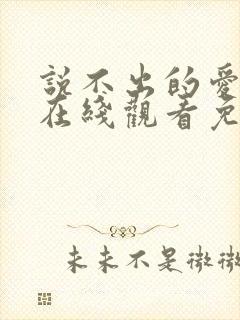 説不出的愛
在綫觀看免
未來不是微微